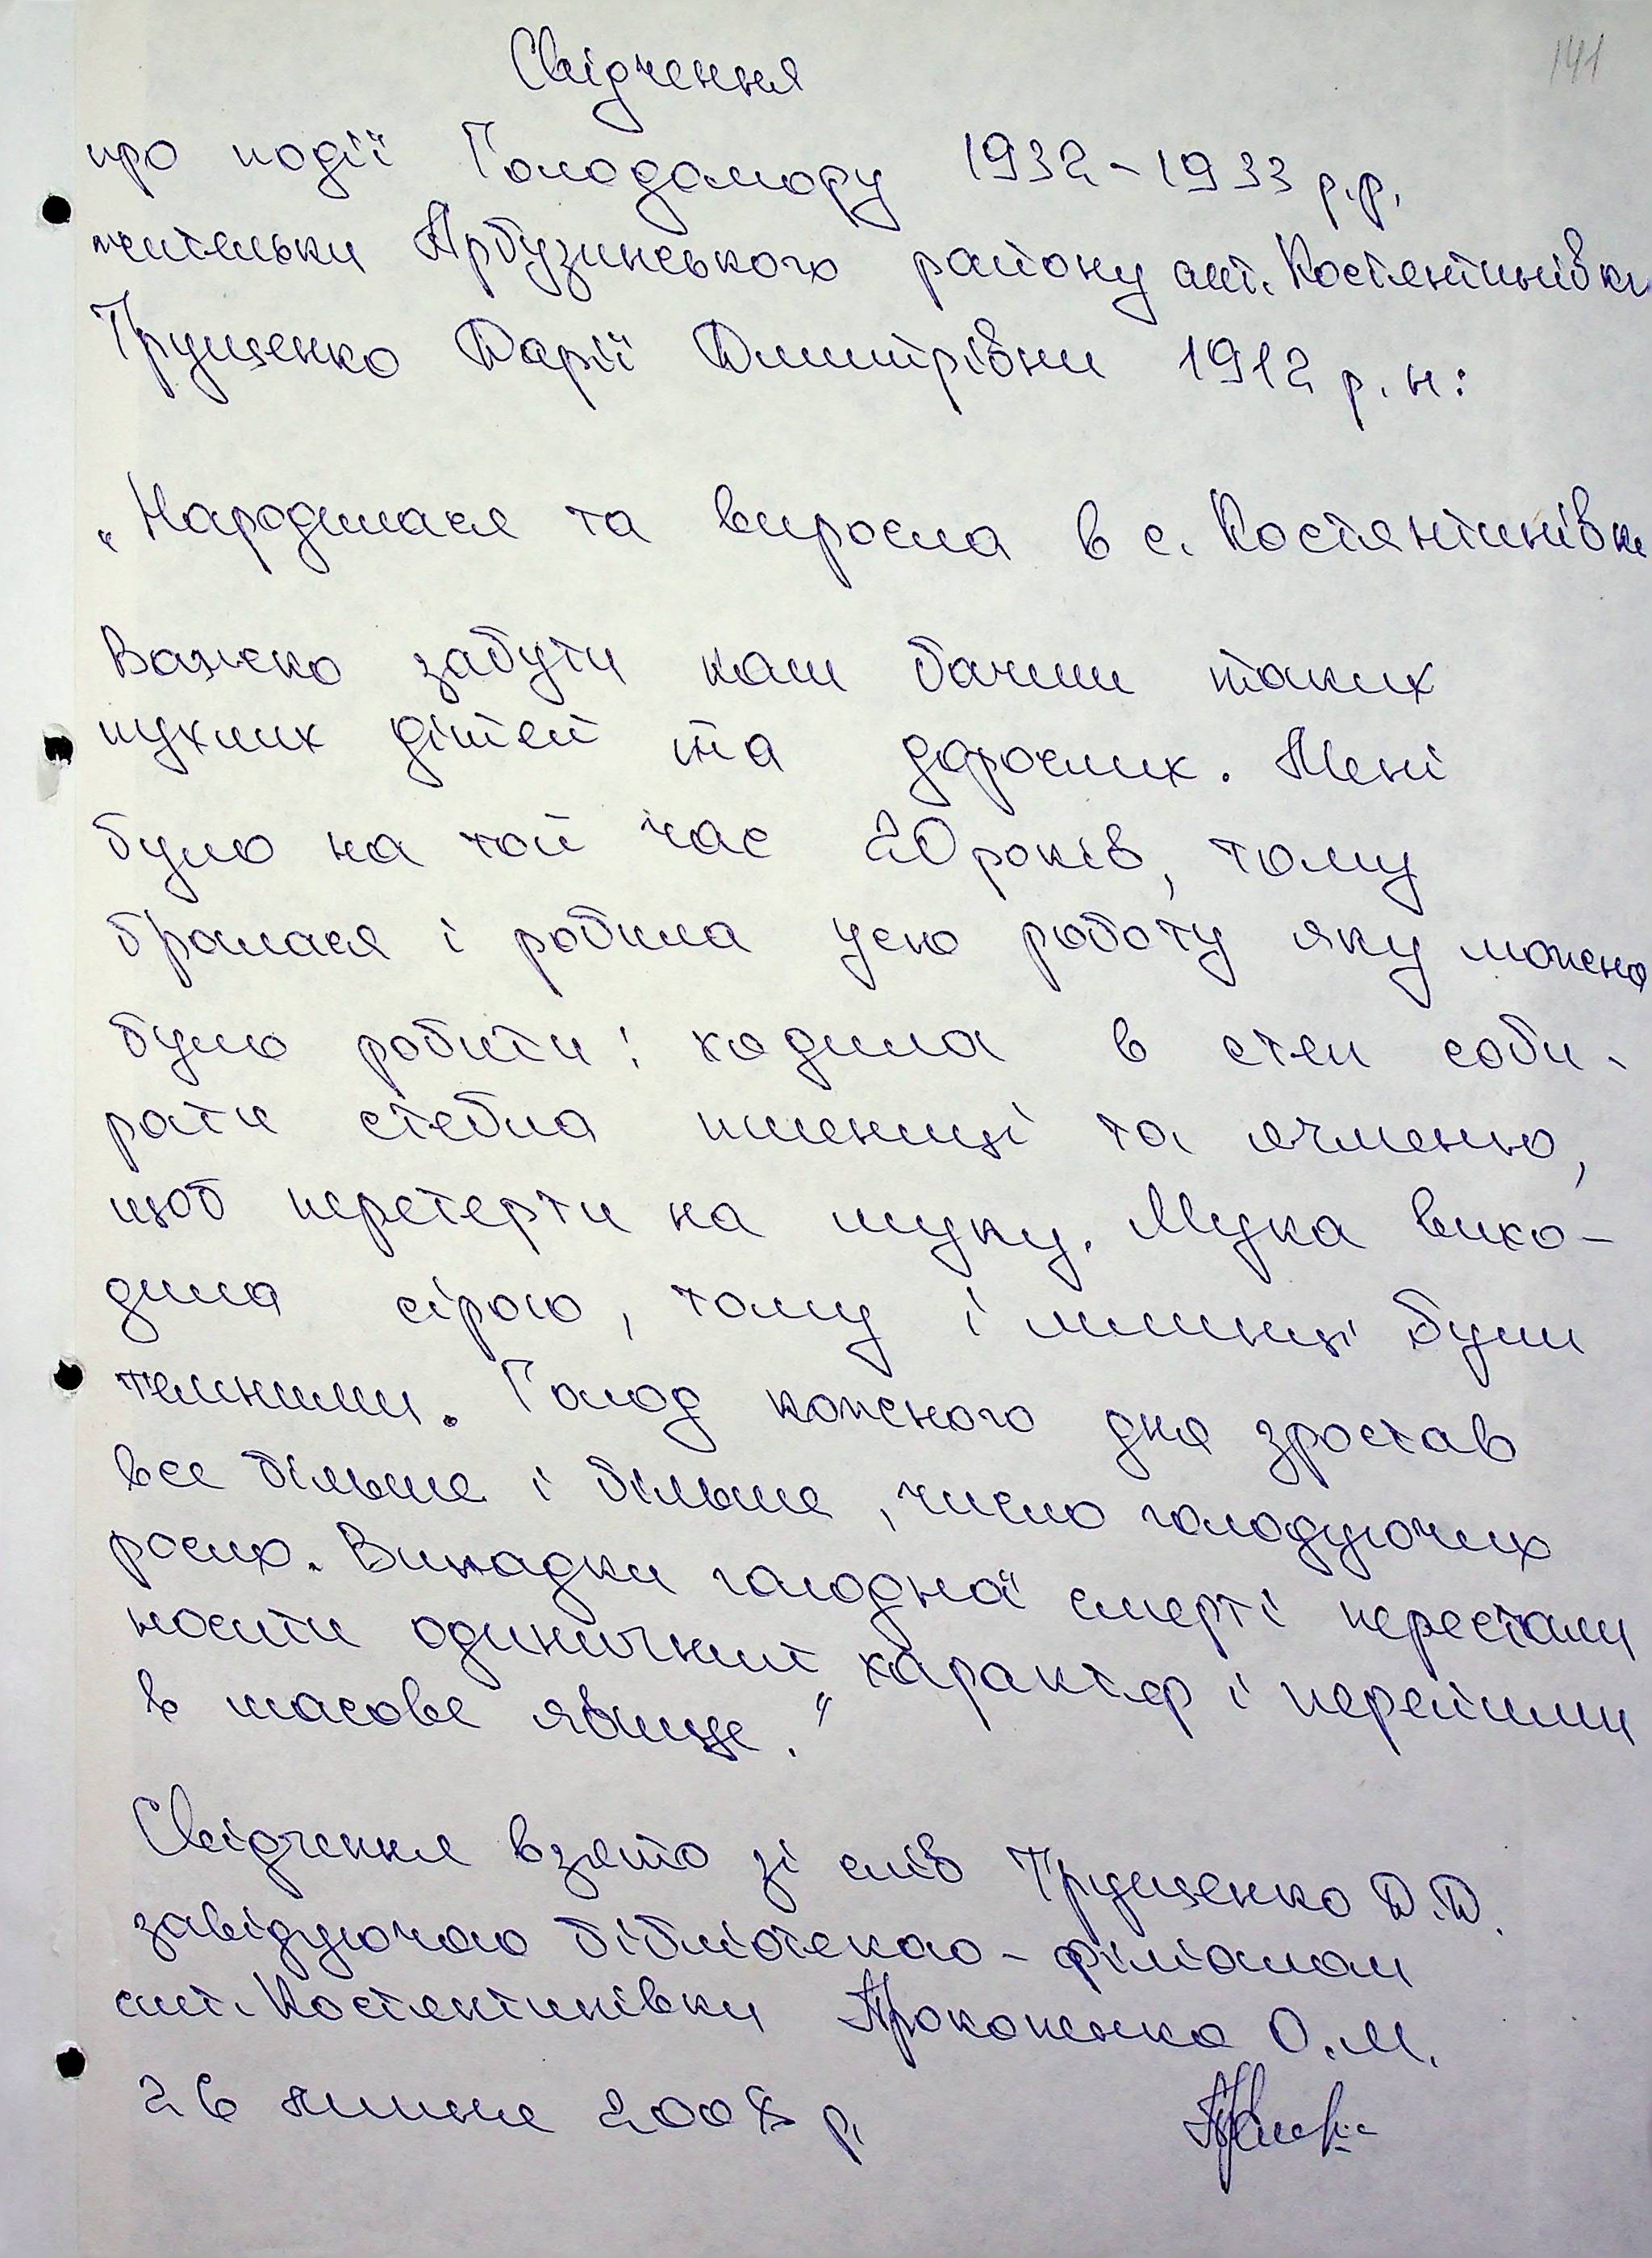 141
Свідчення
про події Голодомору 1932-1933 р.р.
жительки Арбузинського району смт. Костянтинівки
Трущенко Дарії Дмитрівни 1912 р. н:
„Народилася та виросла в с. Костянтинівки
Важко забути коли бачиш таких
пухлих дітей та дорослих. Мені
було на той час 20 років, тому
бралася і робила усю роботу яку можна
було робити: ходила в степ соби-
рати стебла пшениці та ячменю,
щоб перетерти на муку. Мука вихо-
дила сірою, тому і млинці були
темними. Голод кожного дня зростав
все більше і більше, число голодуючих
росло. Випадки голодної смерті перестали
носити одиничний характер і перейшли
в масове явище."
Свідчення взято зі слів Трущенко Д.Д.
завідуючою бібліотекою-філіалом
смт. Костянтинівки Прокопенко О.М.
26 липня 2008 р.